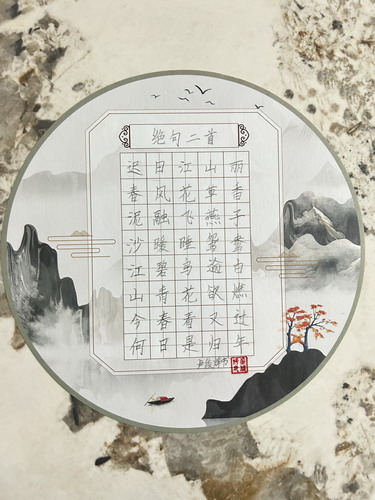 绝句二首
迟日江山丽
春风花草香
泥融飞燕子
沙暖睡鸳鸯
江碧鸟逾白
山青花欲燃
今春看又过
何日是归年